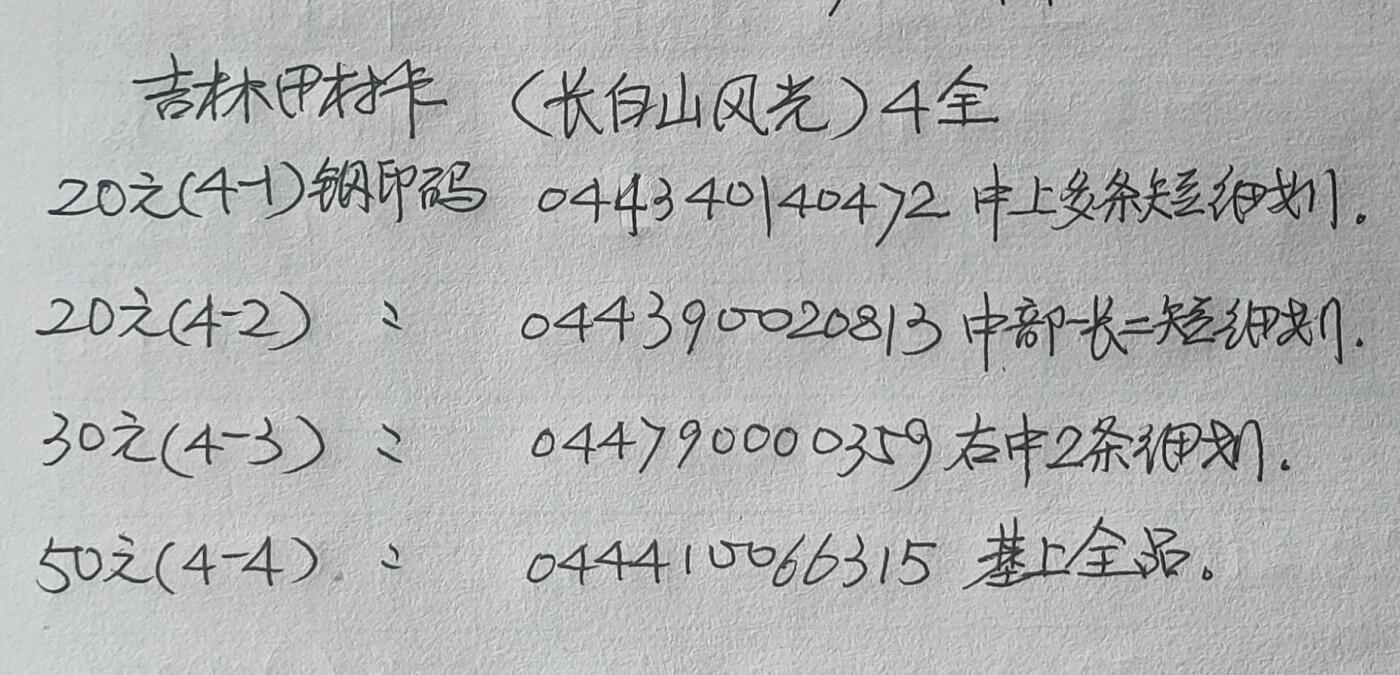 吉林田村卡 (长白山风光) 4全
20元(4-1)钢印码 044340140472 中上多条短细划。
20元(4-2) 〃 044390020813 中部一长二短细划.
30元(4-3) 〃 044790000359 右中2条细划.
50元(4-4) 〃 044410066315 基上全品。